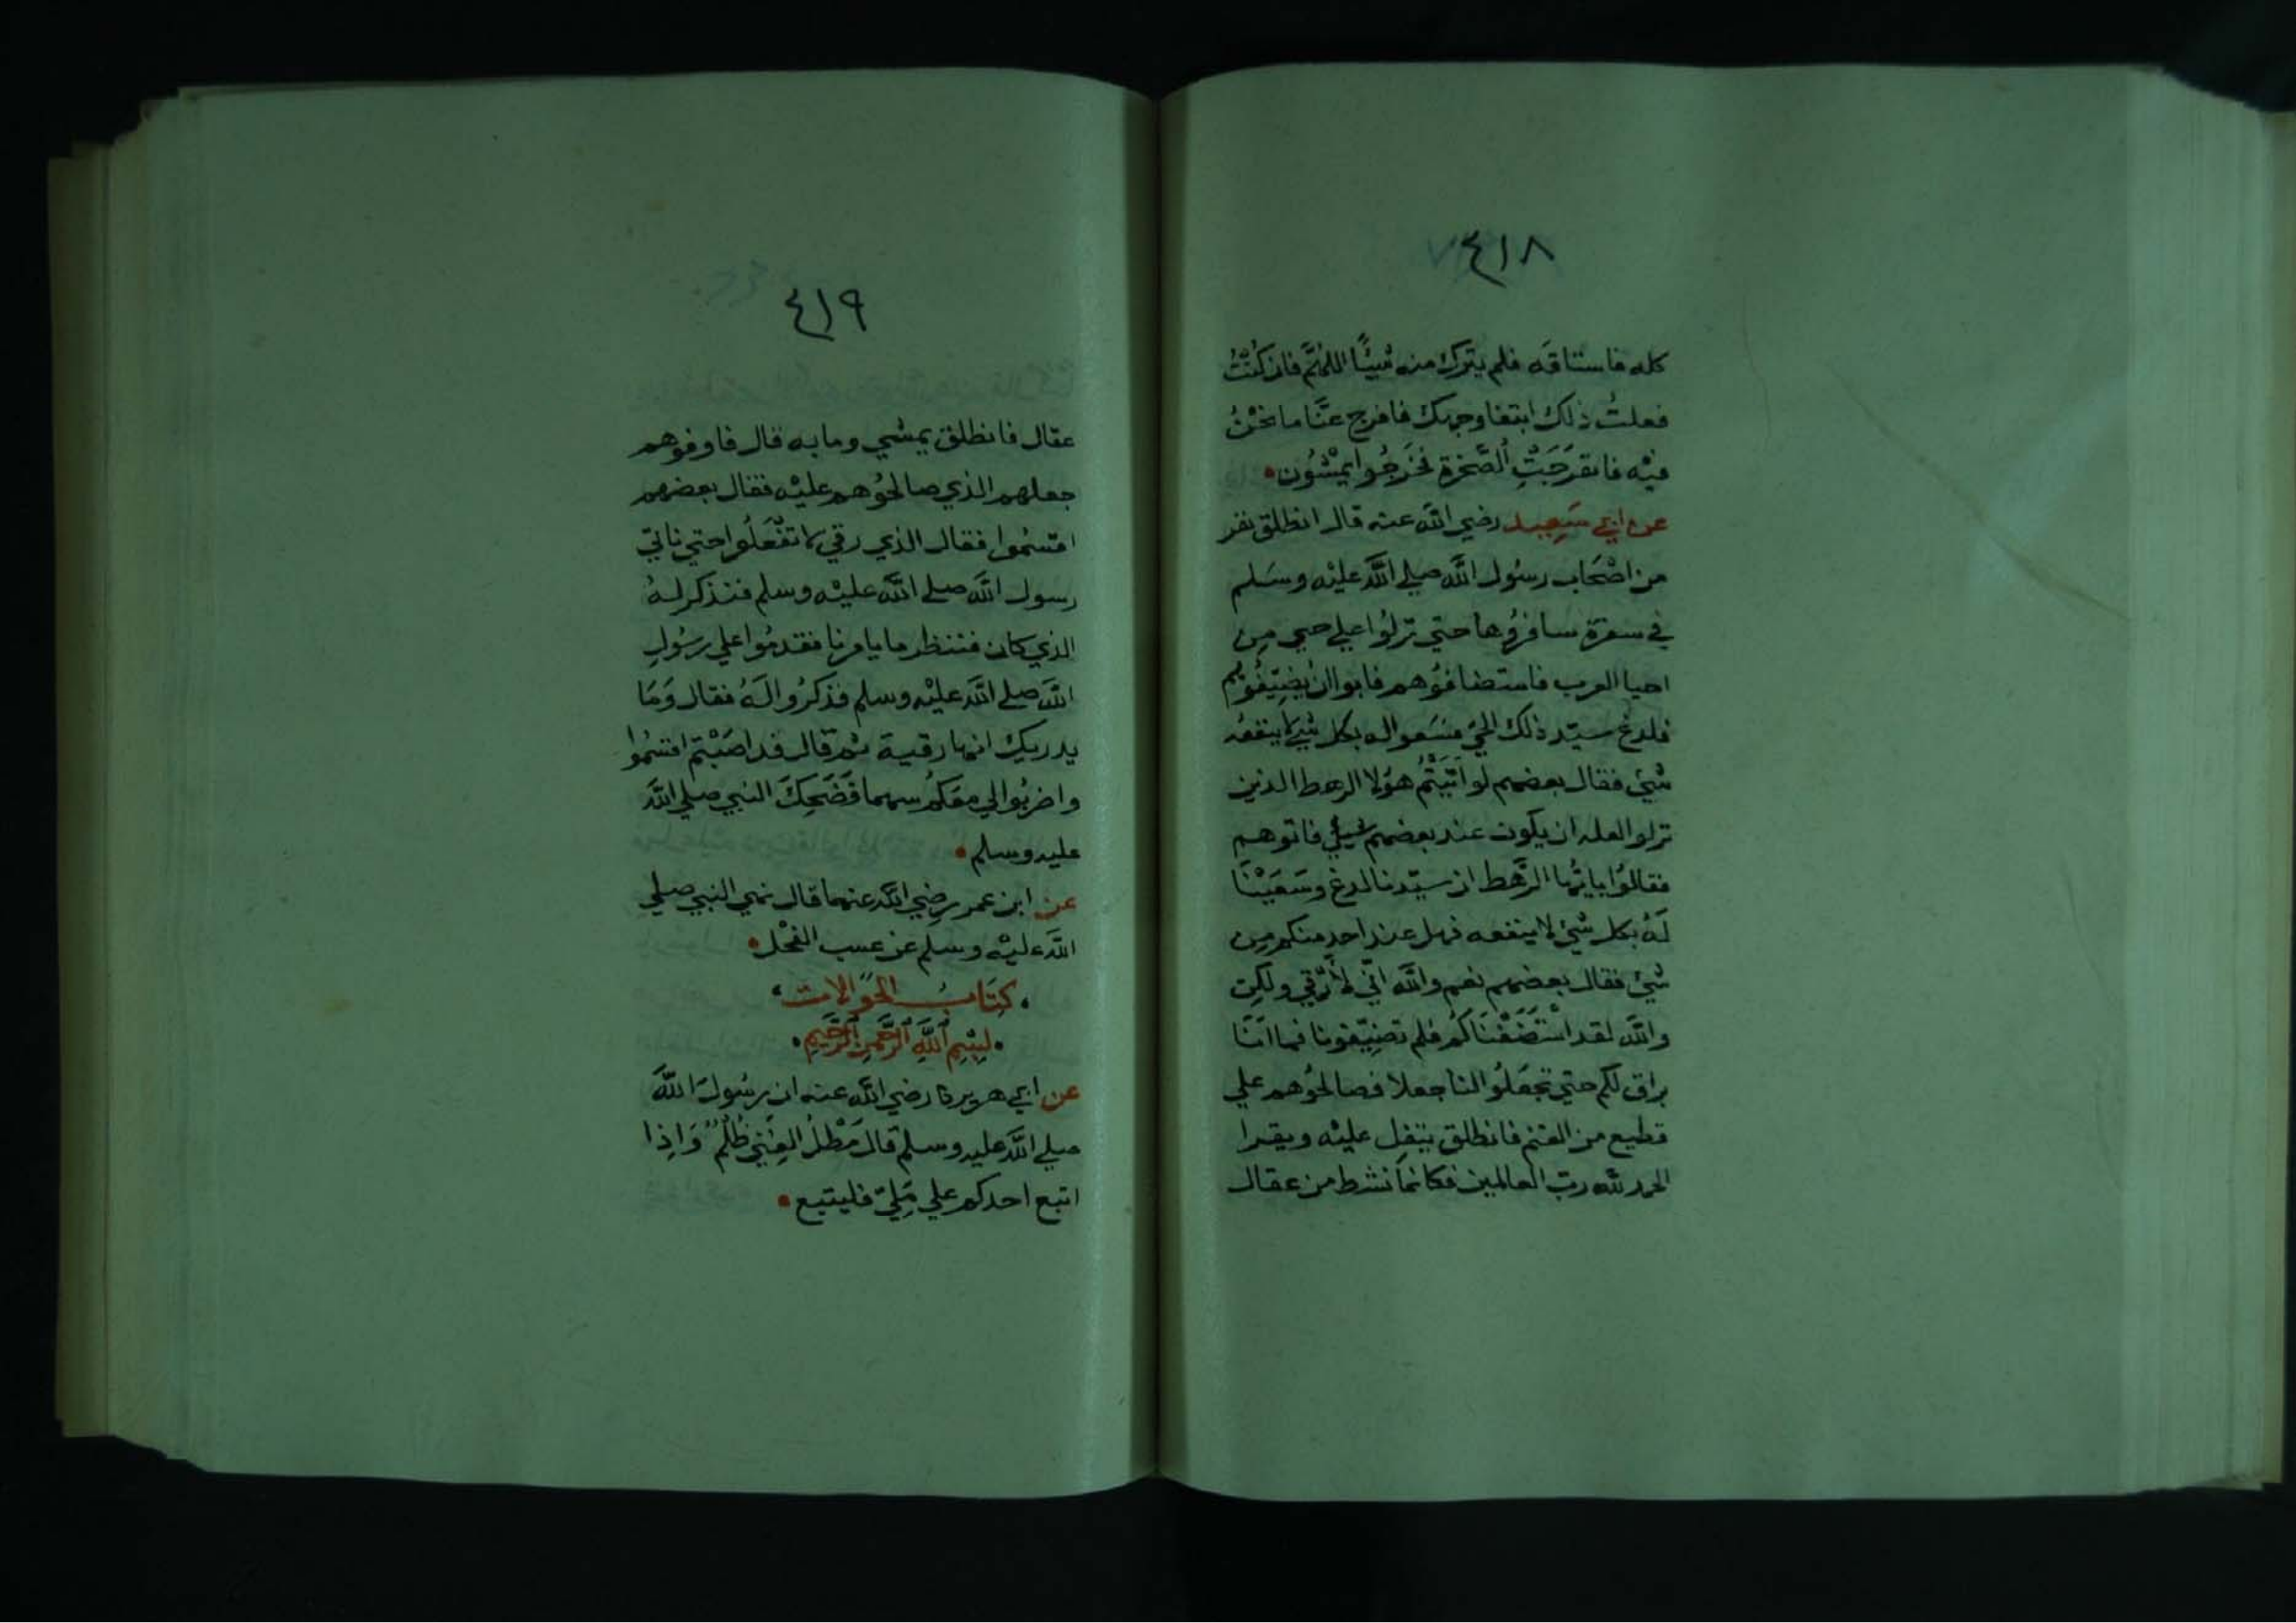 ٤١٨
كله فاستاقه فلم يترك منه شيئًا اللهُمَّ فان كُنْتُ
فعلتُ ذلك ابتغا وجهك فافرج عنَّا ما نحْنُ
فيْه فانفرَجَتِ الصَّخرة فخرَجُوا يمْشُون
عن ابي سَعِيد رضي الله عنه قال انطلق نفر
من اصْحَاب رسُول الله صلي الله عليْه وسَلم
في سفرة سافرُوها حتي نزلوُا علي حي مِن
احيا العرب فاستضافوُهم فابوا ان يُضيِّفُوهُم
فلدغ سيّد ذلك الحيّ فسَعوا له بكل شي لا ينفعُه
شيْ فقال بعضهم لو اتَيْتُم هوُلا الرهط الذين
نزلوا لعله ان يكون عند بعضهم شيْ فاتوهم
فقالوُا يا ايُّها الرَّهط ان سيّدنا لدغ وسَعَيْنَا
لَهُ بكل شيْ لا ينفعه فهل عند احد منكم مِن
شيْ فقال بعضهم نعم والله انِّي لأرْقي ولكِن
والله لقد اسْتَضَفْنَاكُم فلم تضيِّفونا فما انَا
براق لكم حتي تجعَلوُا لنا جعلا فصالحوُهم علي
قطيع من الغنم فانطلق يتفِل عليْه ويقرا
الحمد لله ربّ العالمين فكانمَا نشط من عقال
٤١٩
عقال فانطلق يمشي وما به قال فاوفوهم
جعلهم الذي صالحوُهم عليْه فقال بعضهم
اقسمُوا فقال الذي رقي لا تفْعَلُوا حتي ناتي
رسول الله صلي الله عليْه وسلم فنذكر لهُ
الذي كان فننظر ما يامرنا فقدمُوا علي رسُولِ
الله صلي الله عليْه وسلم فذكرُوا لَهُ فقال وَمَا
يدريك انها رقية ثم قال قد اصَبْتم اقسمُوا
واضربُوا لي معَكُم سهما فَضَحِكَ النبي صلي الله
عليه وسلم
عن ابن عمر رضي الله عنهما قال نهي النبي صلي
الله عليْه وسلم عن عسب الفحْل
كِتَابُ الحَوَالات
بِسْمِ اللهِ الرَّحْمنِ الرَّحِيمِ
عن ابي هريرة رضي الله عنه ان رسُولَ اللهَ
صلي الله عليه وسلم قال مَطْلُ الغِنيِ ظُلْمٌ وَاِذا
اتبع احدكم علي مَليّ فليتبع